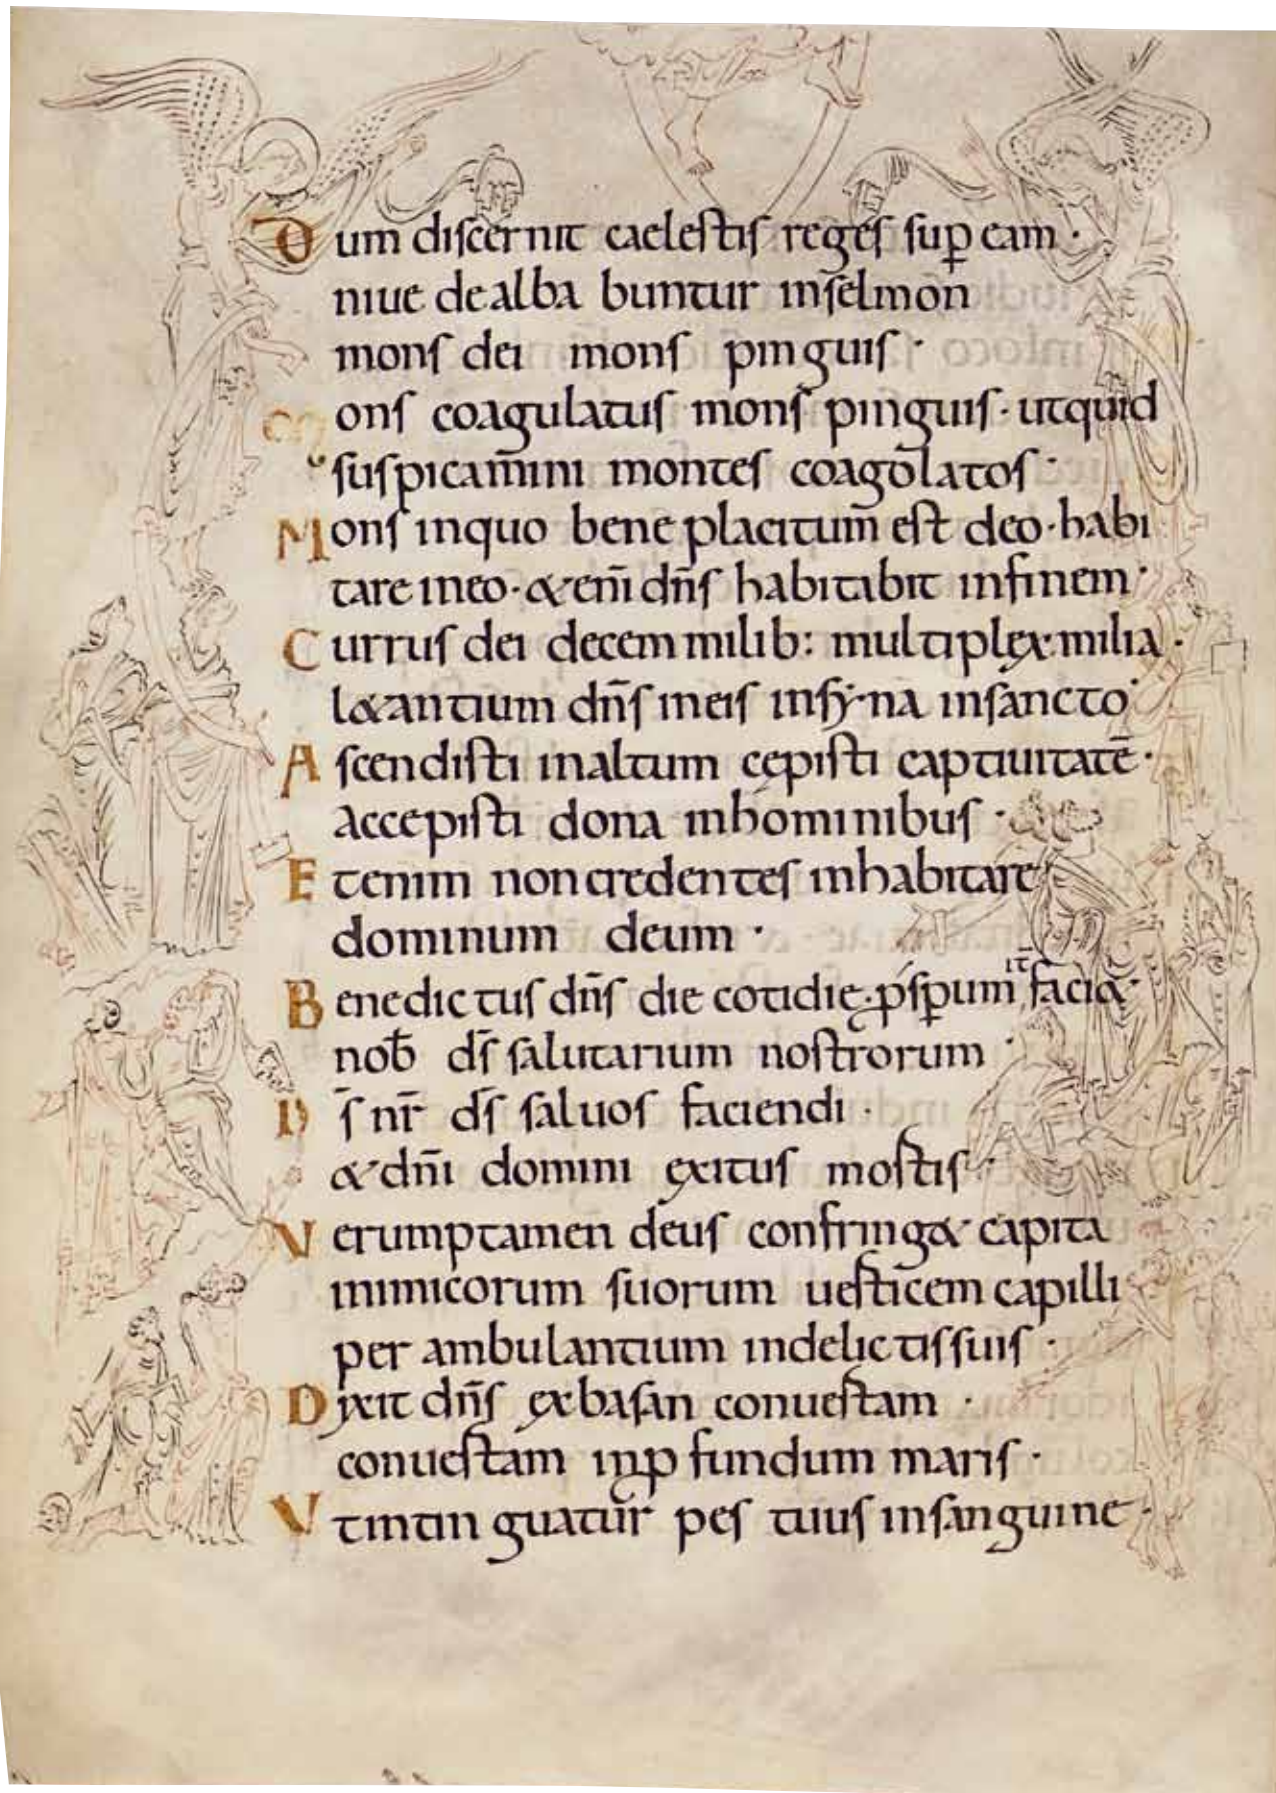 Dum discernit caelestis reges sup̱ eam ·
niue dealba buntur inselmon
mons dei mons pinguis ·
Mons coagulatus mons pinguis · utquid
suspicamini montes coagolatos ·
Mons inquo bene placitum est deo · habi
tare ineo · & enī dñs habitabit infinem ·
Currus dei decem milib: multiplex milia ·
l&antium dñs ineis insy·na insancto ·
Ascendisti inaltum cępisti captiuitatē ·
accepisti dona inhominibus ·
Etenim noncredentes inhabitare
dominum deum ·
Benedictus dñs die cotidie · ꝓsp̱um it̄ faci&
nob̄ ds̄ salutarium nostrorum ·
Ds̄ nr̄ ds̄ saluos faciendi ·
& dñi domini exitus mostis ·
Verumptamen deus confring& capita
inimicorum suorum uesticem capilli
per ambulantium indelictis suis ·
Dixit dñs exbasan conuestam ·
conuestam inꝓfundum maris ·
Vtintinguatur pes tuus insanguine ·